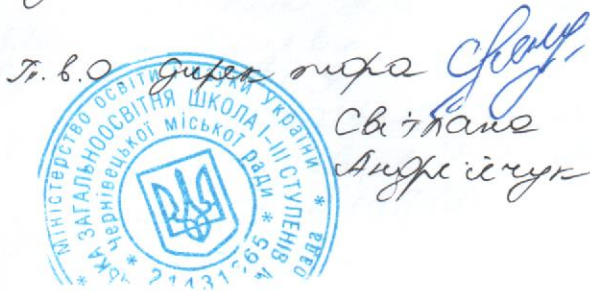 Т.в.о директора
Світлана
Андрійчук
Міністерство освіти і науки України *
ЬКА ЗАГАЛЬНООСВІТНЯ ШКОЛА І-ІІІ СТУПЕНІВ
* Чернівецької міської ради *